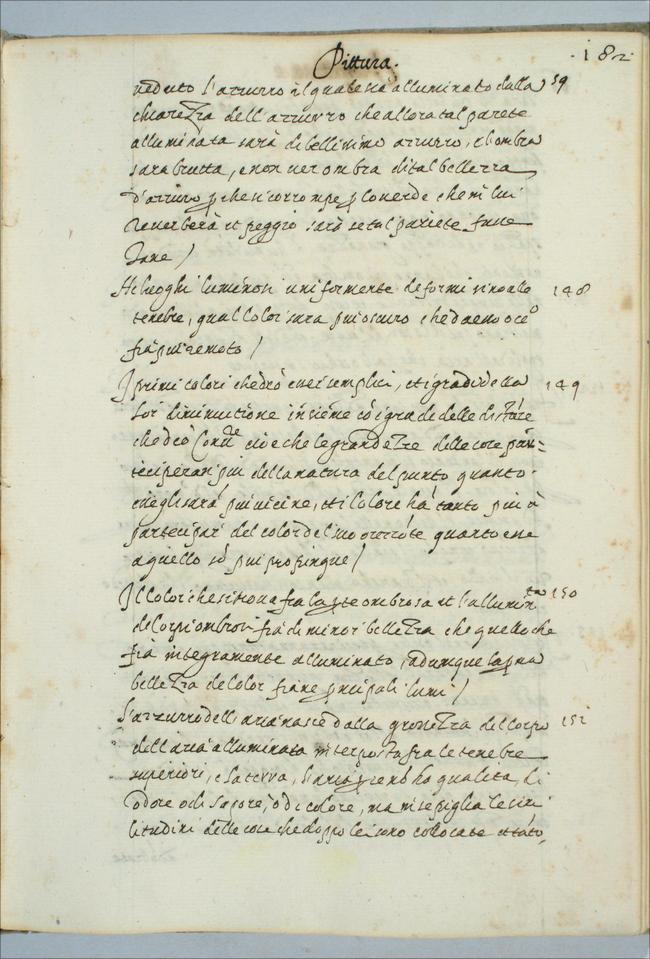 Pittura. 182
ueduto l'azzurro il quale uà alluminato dalla 59
chiarezza dell'azzurro che allora tal parete
alluminata sarà di bellissimo azzurro, et l'ombra
sara brutta, e non uer ombra di tal bellezza
d'azzurro, p che si corrompe p lo uerde che in lui
reuerberà et peggio sarà se tal pariete fusse
tane /
Ne luoghi luminosi uniformente deformi sino alle 148
tenebre, quel color sara piu oscuro che da esso oc.o
fia piu remoto /
I primi colori che dro essere semplici, et i gradi della 149
lor diminuitione insieme cò i gradi delle distàze
che dro Conu.re cioè che le grandezze delle cose par=
teciperan piu della natura del punto quanto
esse gli sarà, piu uicine, et i colore hà tanto piu à
partecipar del color del suo orizóte quanto esse
a quello sò piu propinque /
Il Color che si troua fra la pte ombrosa et l'allumin.ta 150
de Corpi ombrosi fia di minor bellezza che quello che
fia integramente alluminato, adunque la pma
bellezza de color fia ne pncipali lumi /
L'azzurro dell'aria nasce dalla grossezza del corpo 151
dell'aria alluminata interposta fra le tenebre
superiori, e la terra, L'aria p se nò ha qualita, di
odore o di sapore, ò di colore, ma in se piglia le simi
litudini delle cose che doppo lei sono collocate et tàto,